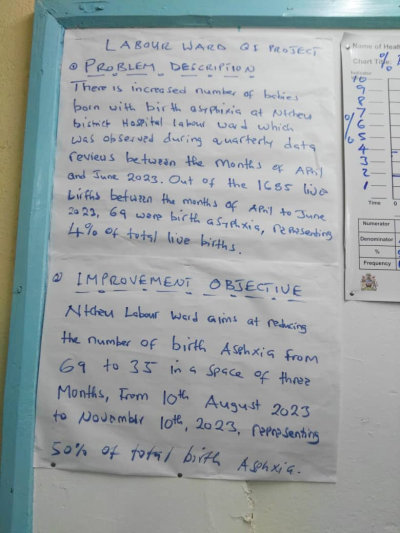 LABOUR WARD QI PROJECT
① PROBLEM DESCRIPTION
There is increased number of babies
born with birth asphixia at Ntcheu
District Hospital labour ward which
was observed during quarterly data
reviews between the months of April
and June 2023. Out of the 1685 live
births between the months of April to June
2023, 69 were birth asphyxia, representing
4% of total live births.
② IMPROVEMENT OBJECTIVE
Ntcheu Labour Ward aims at reducing
the number of birth Asphxia from
69 to 35 in a space of three
Months, From 10th August 2023
to November 10th, 2023, representing
50% of total birth Asphxia.
Name of Heal
Chart Title:
Indicator
10
9
8
7
%
6
5
4
3
2
1
Time 0
Numerator
Denominator
%
Frequency